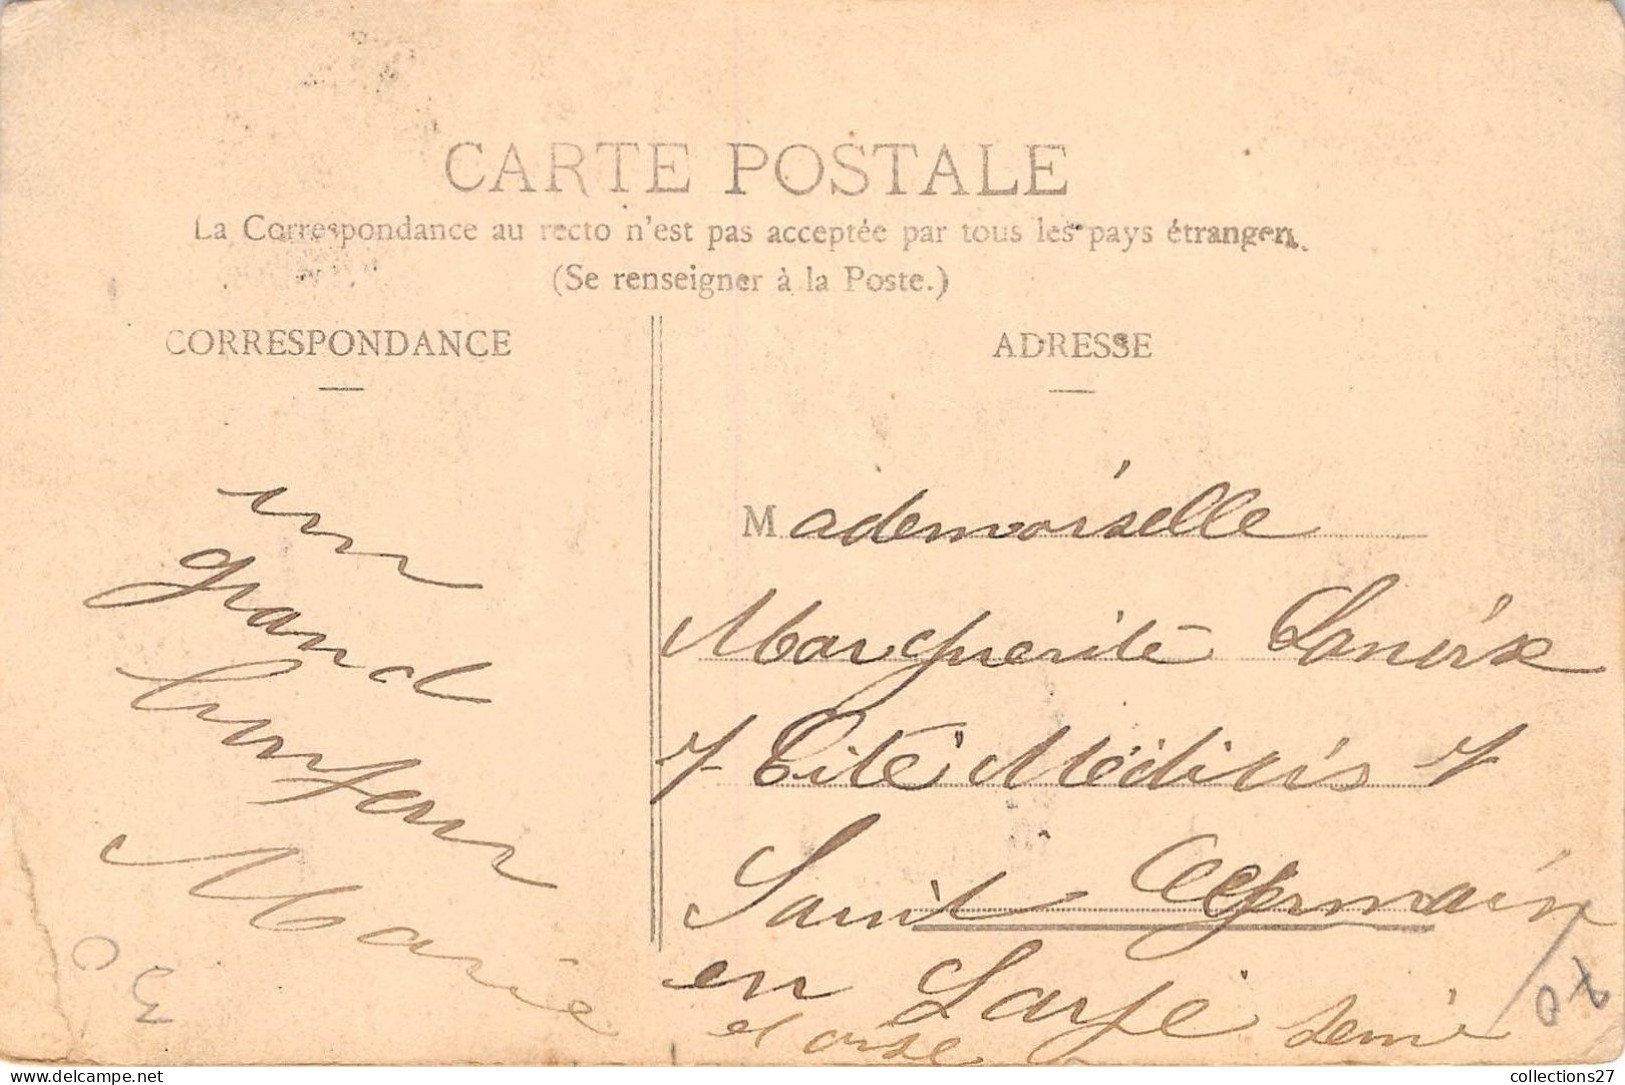 CARTE POSTALE
La Correspondance au recto n'est pas acceptée par tous les pays étrangers.
(Se renseigner à la Poste.)
CORRESPONDANCE
un
grand
bonjour
Marie
ADRESSE
Mademoiselle
Marguerite Lanoix
7 Cité Médicis 7
Saint Germain
en Laye Seine
et oise
collections27